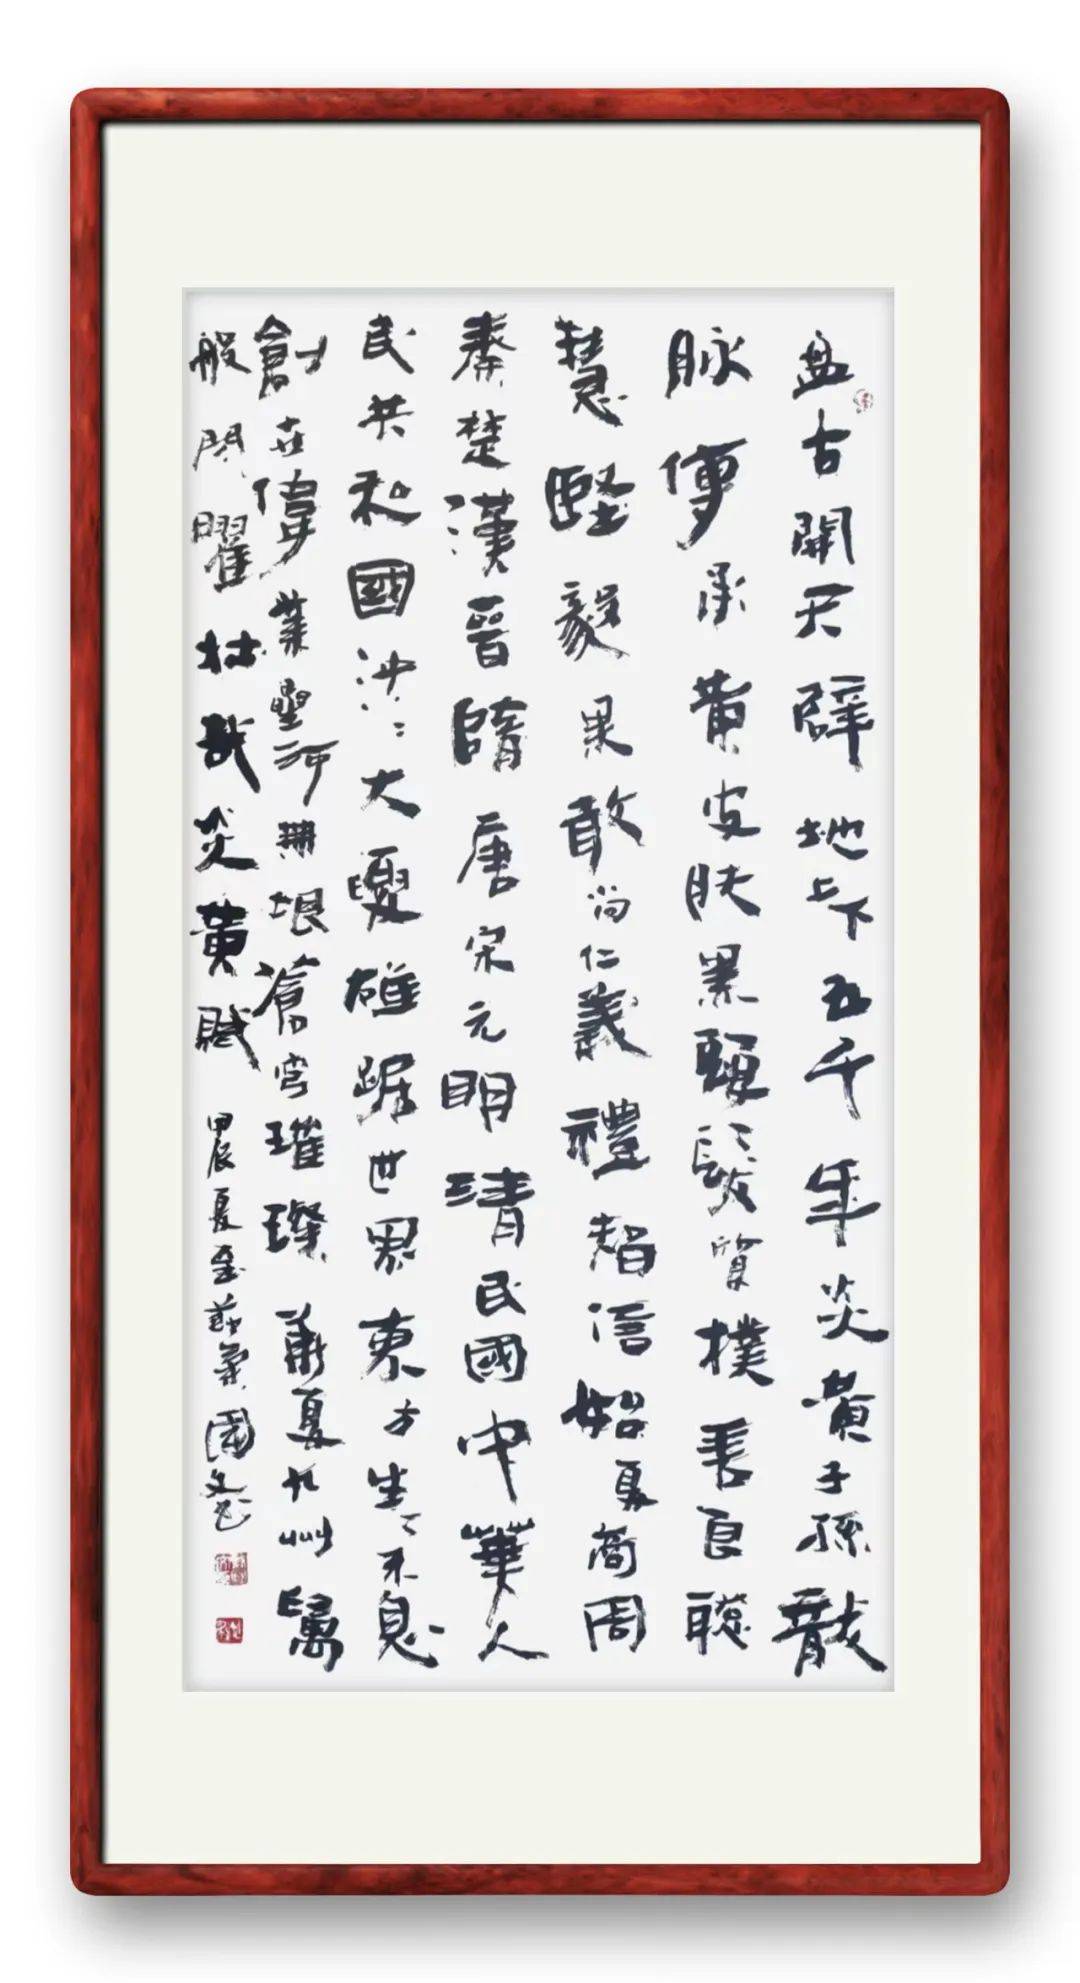 盘古開天辟地上下五千年炎黄子孫龍
脉傳承黄皮肤黑頭髮質樸善良聰
慧堅毅果敢尚仁義禮智信始夏商周
秦楚漢晉隋唐宋元明清民國中華人
民共和國泱〻大夏雄踞世界東方生〻不息
創世偉業星河無垠蒼穹璀璨華夏九州萬
般閃耀壯哉炎黄賦 甲辰夏至 國文書